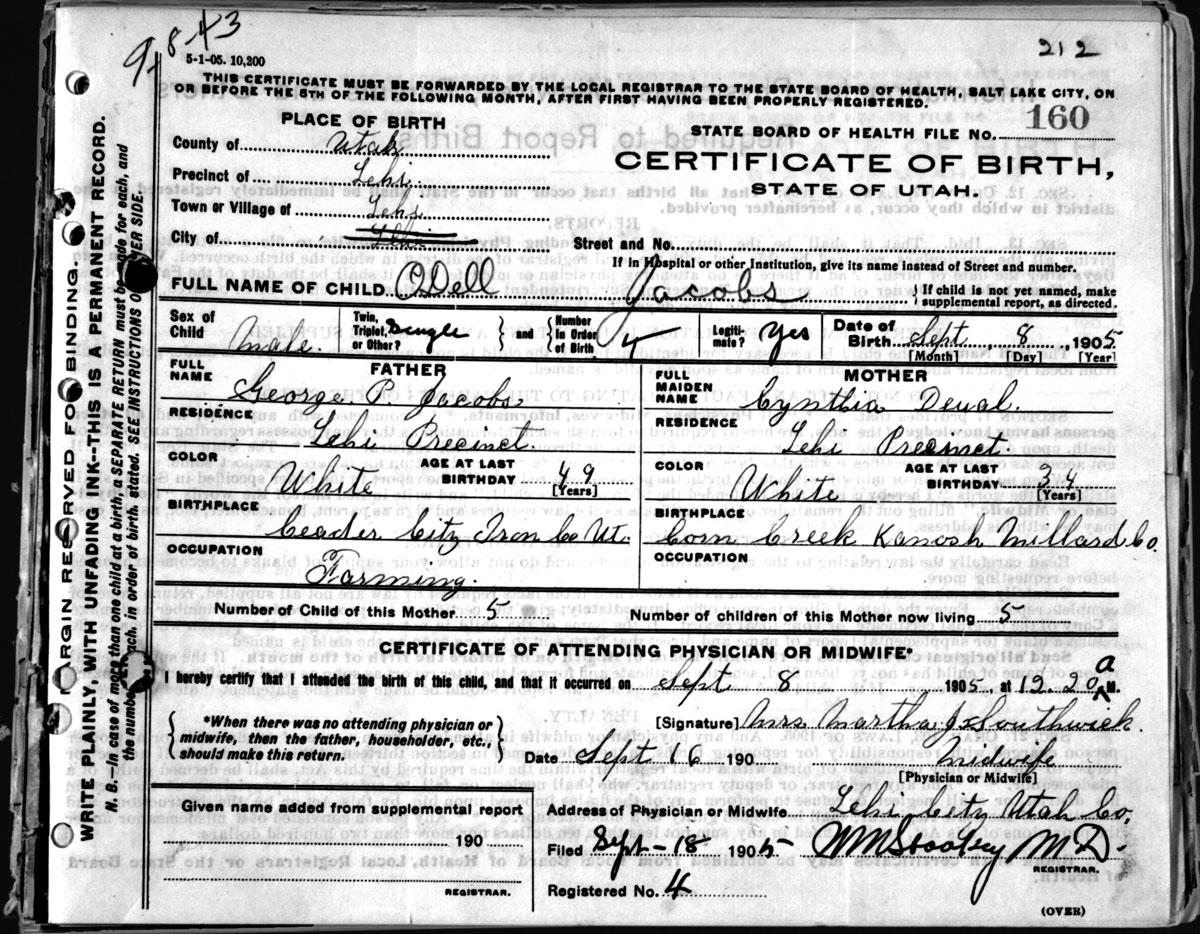 9-843
212
5-1-05. 10,200
THIS CERTIFICATE MUST BE FORWARDED BY THE LOCAL REGISTRAR TO THE STATE BOARD OF HEALTH, SALT LAKE CITY, ON
OR BEFORE THE 5TH OF THE FOLLOWING MONTH, AFTER FIRST HAVING BEEN PROPERLY REGISTERED.
PLACE OF BIRTH
STATE BOARD OF HEALTH FILE NO. 160
County of Utah
CERTIFICATE OF BIRTH,
Precinct of Lehi
STATE OF UTAH.
Town or Village of Lehi
City of Lehi
Street and No.
If in Hospital or other Institution, give its name instead of Street and number.
FULL NAME OF CHILD ODell Jacobs { If child is not yet named, make supplemental report, as directed.
Sex of Child Male. Twin, Triplet, or Other? Single } and { Number in Order of Birth Legiti-mate? Yes Date of Birth Sept. 8, 1905
[Month] [Day] [Year]
FATHER
MOTHER
FULL NAME George P. Jacobs
FULL MAIDEN NAME Cynthia Deual.
RESIDENCE Lehi Precinct.
RESIDENCE Lehi Precinct.
COLOR White AGE AT LAST BIRTHDAY 49 [Years]
COLOR White AGE AT LAST BIRTHDAY 34 [Years]
BIRTHPLACE Ceader City Iron Co Ut.
BIRTHPLACE Corn Creek Kanosh Millard Co.
OCCUPATION Farming.
OCCUPATION
Number of Child of this Mother 5
Number of children of this Mother now living 5
CERTIFICATE OF ATTENDING PHYSICIAN OR MIDWIFE*
I hereby certify that I attended the birth of this child, and that it occurred on Sept 8 1905, at 12.20 a M.
{ *When there was no attending physician or midwife, then the father, householder, etc., should make this return. }
[Signature] Mrs. Martha J. Southwick.
Date Sept 16 190
Midwife
[Physician or Midwife]
Given name added from supplemental report
190
REGISTRAR.
Address of Physician or Midwife Lehi City Utah Co,
Filed Sept-18 1905 M.D.
REGISTRAR.
Registered No. 4
(OVER)
MARGIN RESERVED FOR BINDING.
WRITE PLAINLY, WITH UNFADING INK--THIS IS A PERMANENT RECORD.
N. B.--In case of more than one child at a birth, a SEPARATE RETURN must be made for each, and
the number each, in order of birth, stated. SEE INSTRUCTIONS OTHER SIDE.